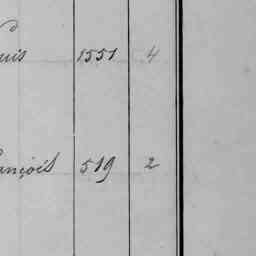 uis 1551 4
ançois 519 2